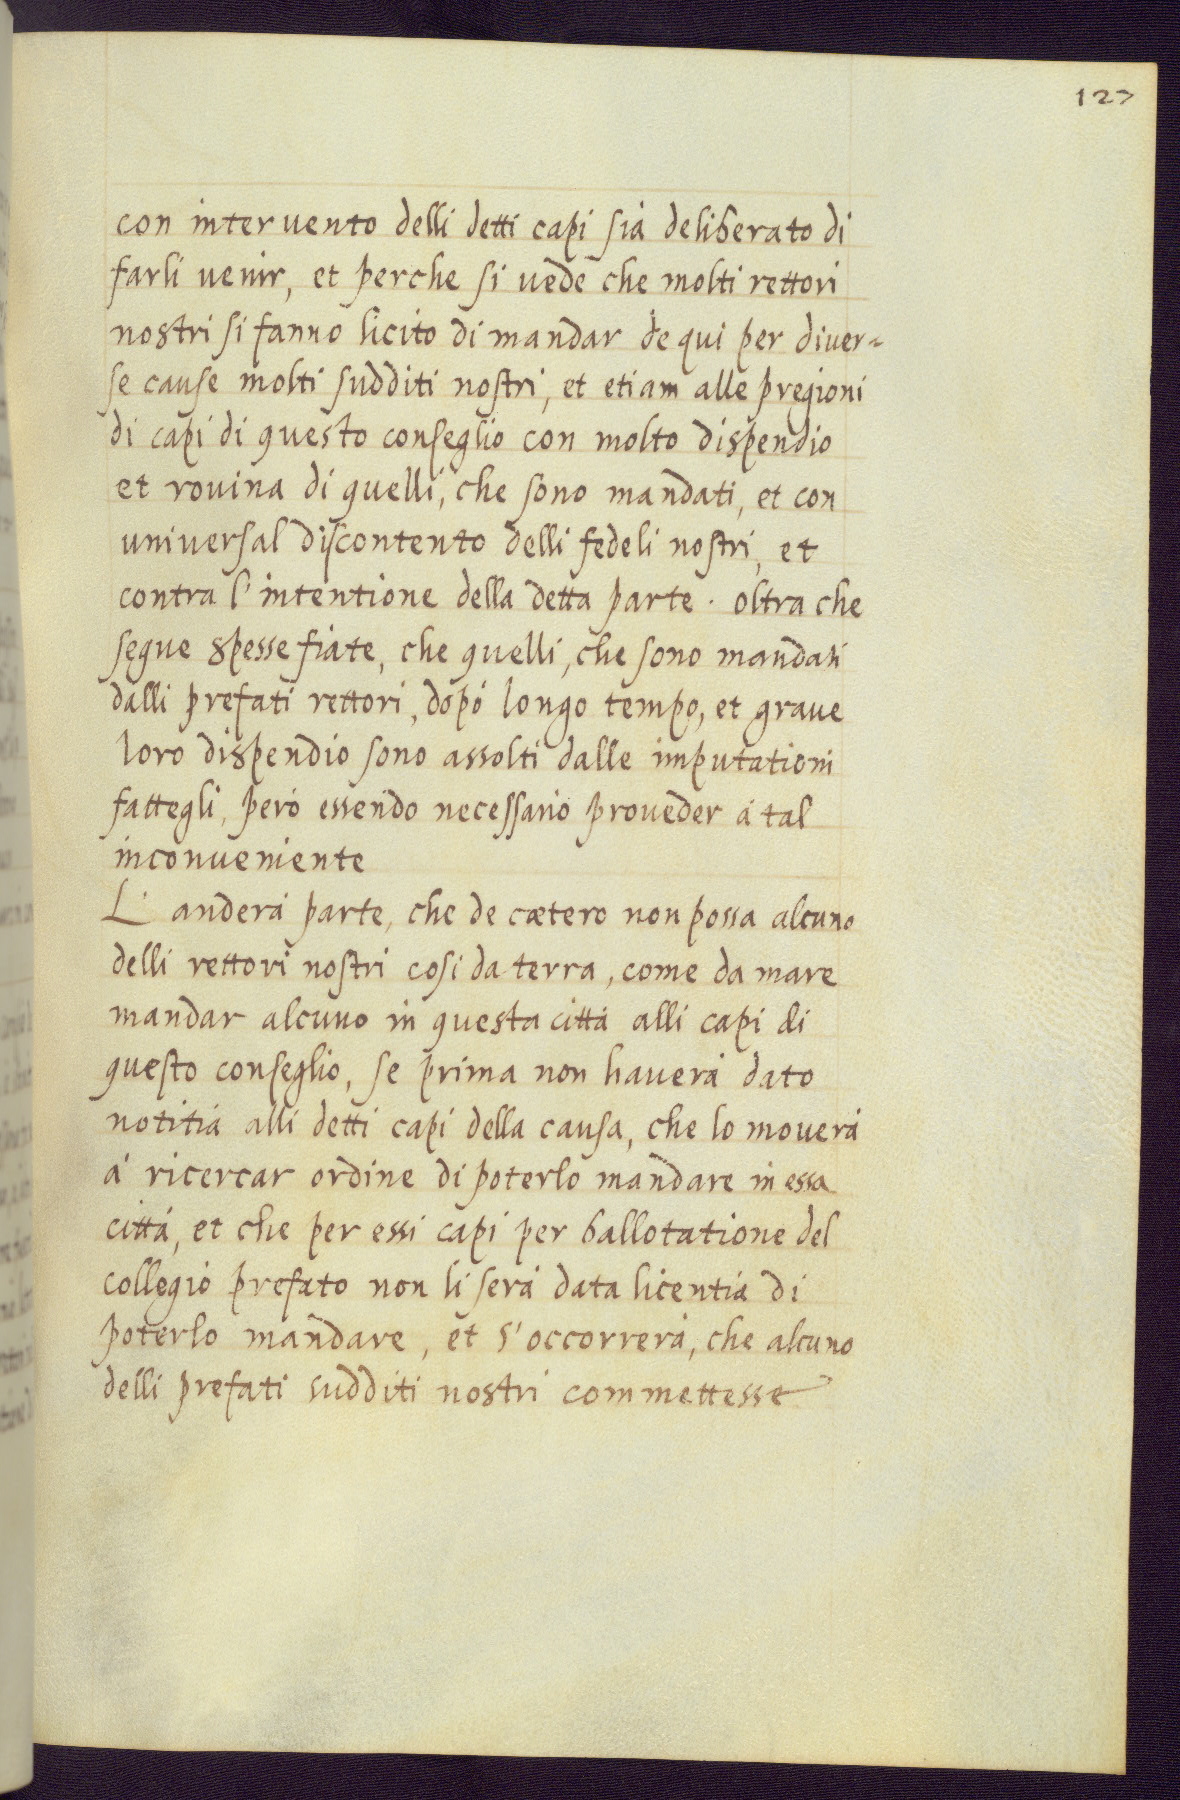 127
con intervento delli detti capi sia deliberato di
farli venir, et perche si vede che molti rettori
nostri si fanno licito di mandar de qui per diver-
se cause molti sudditi nostri, et etiam alle pregioni
di capi di questo conseglio con molto dispendio
et rouina di quelli, che sono mandati, et con
universal discontento delli fedeli nostri, et
contra l'intentione della detta parte. oltra che
segue spesse fiate, che quelli, che sono mandati
dalli prefati rettori, dopò longo tempo, et graue
loro dispendio sono assolti dalle imputationi
fattegli, però essendo necessario proueder á tal
inconueniente
L' anderá parte, che de cætero non possa alcuno
delli rettori nostri cosi da terra, come da mare
mandar alcuno in questa cittá alli capi di
questo conseglio, se prima non hauerá dato
notitia alli detti capi della causa, che lo mouerá
á ricercar ordine di poterlo mandare in essa
cittá, et che per essi capi per ballotatione del
collegio prefato non li será data licentia di
poterlo mandare, et s'occorrerá, che alcuno
delli prefati sudditi nostri commettesse